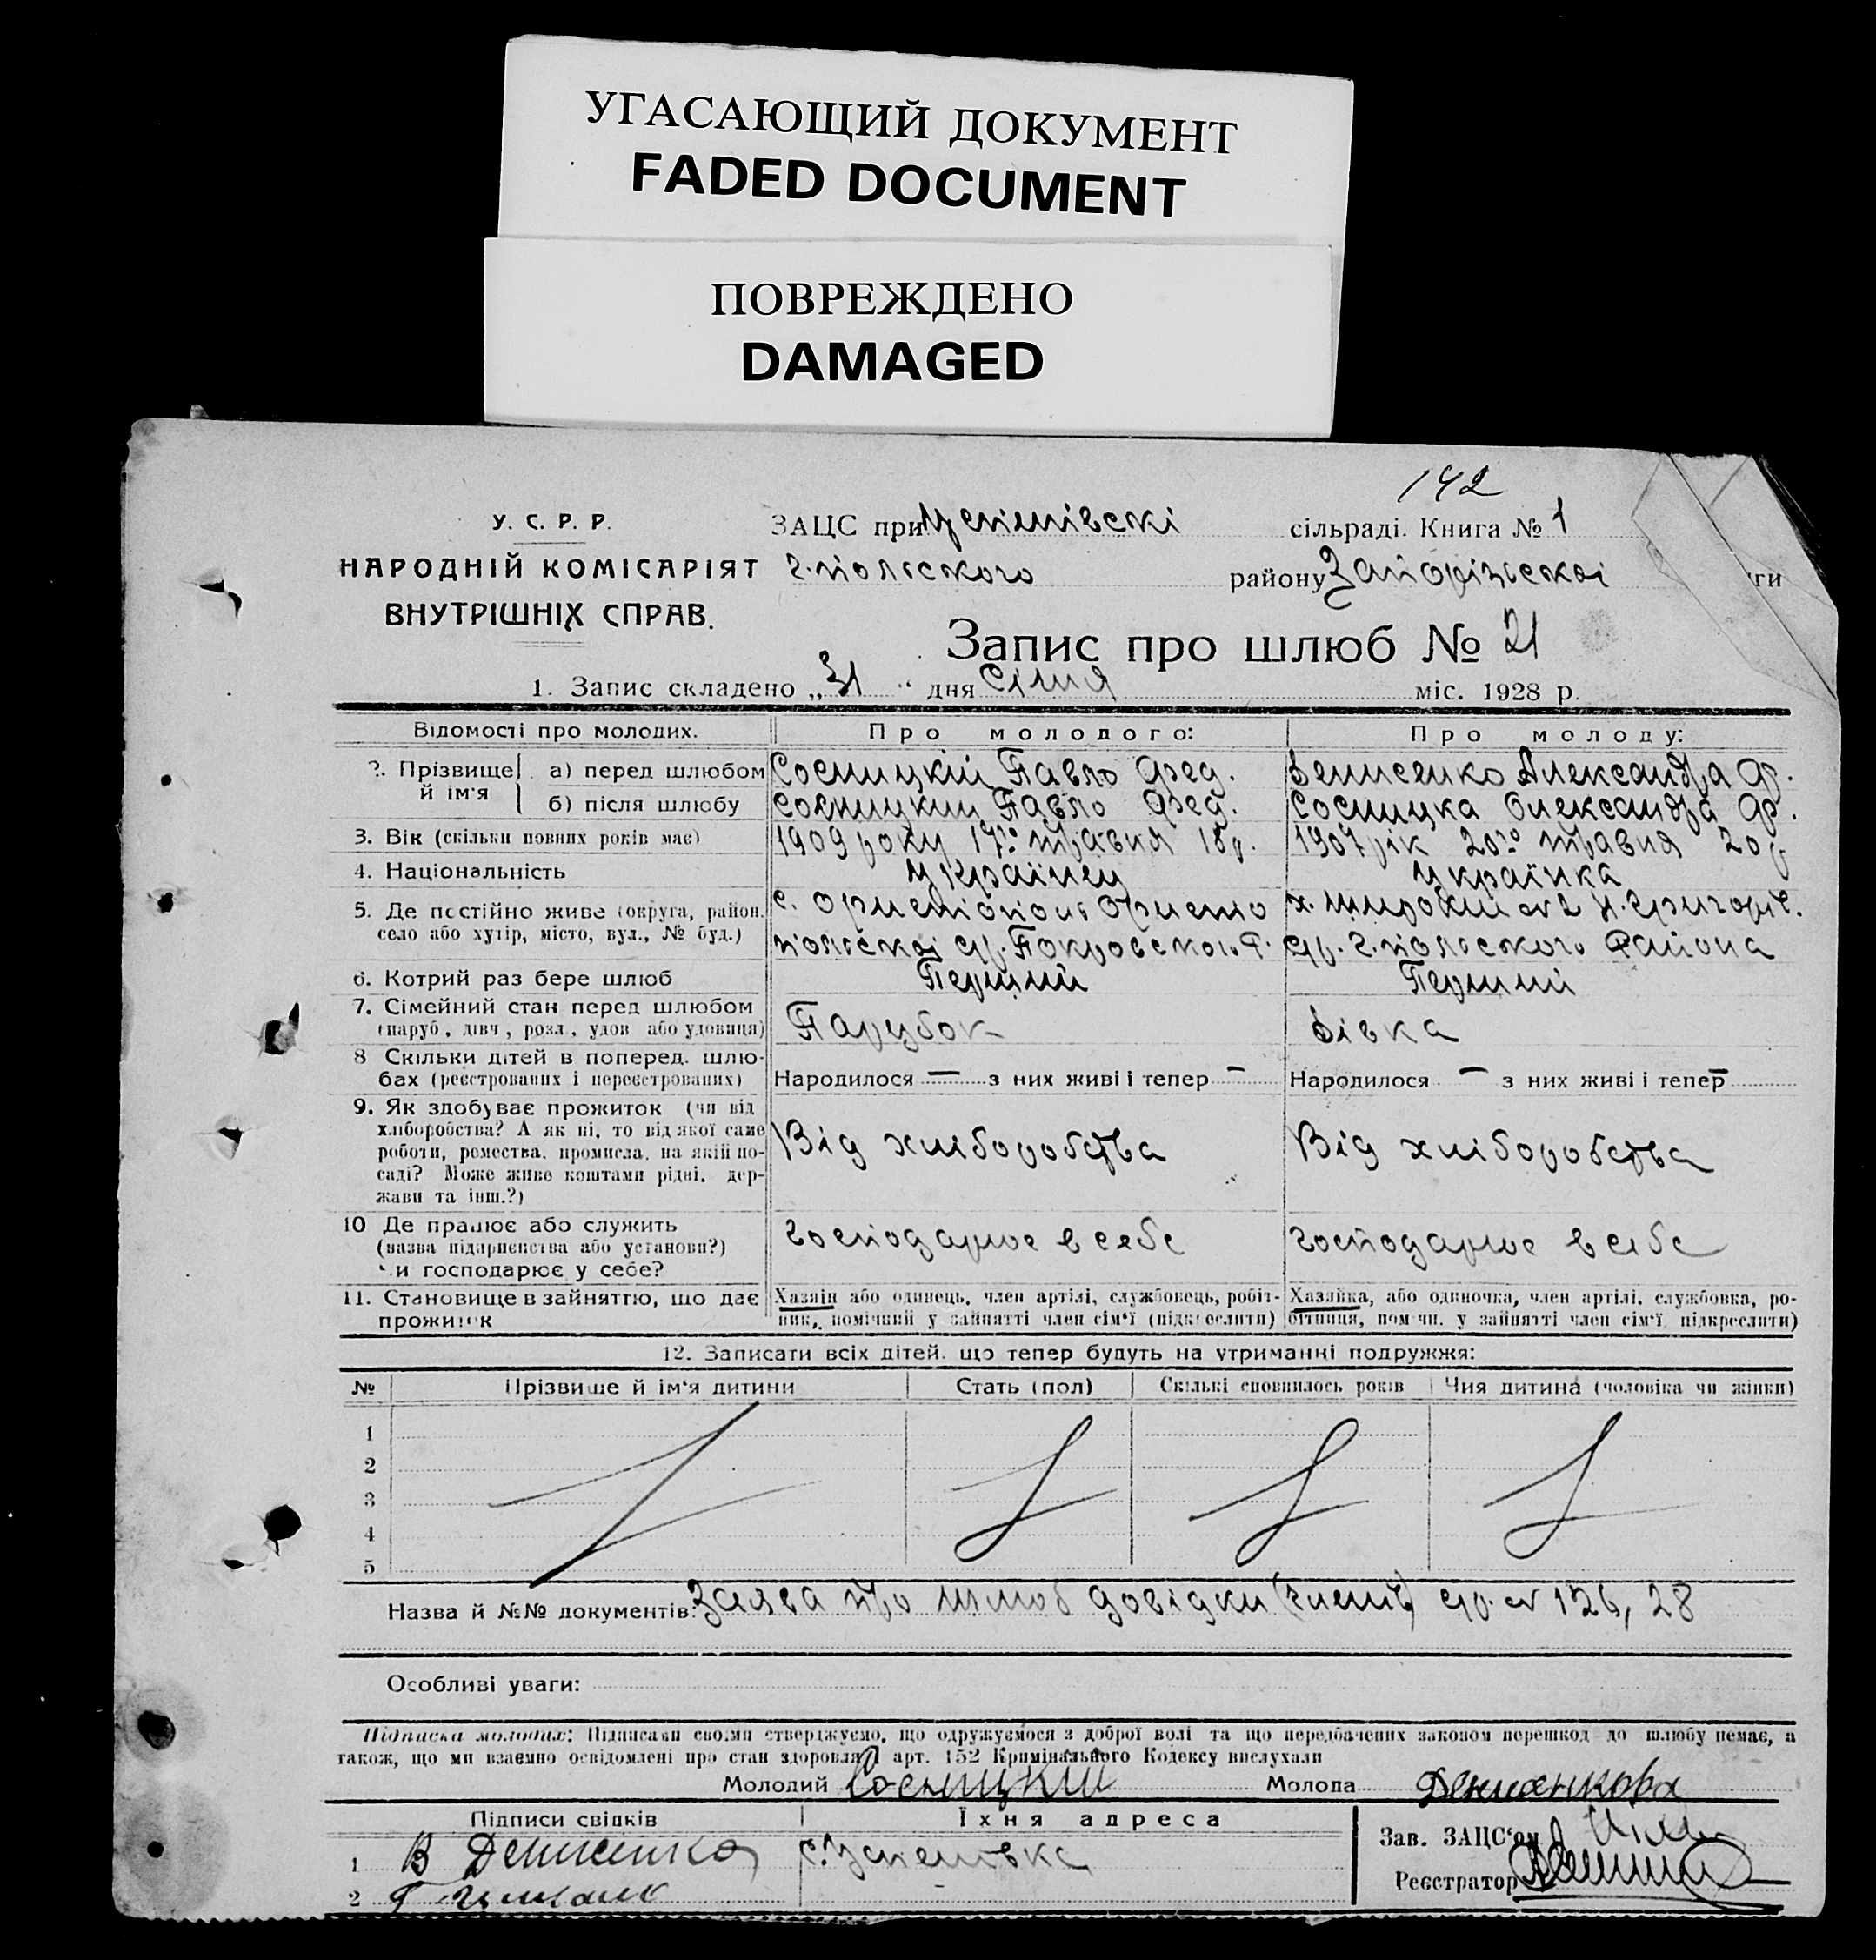 УГАСАЮЩИЙ ДОКУМЕНТ
FADED DOCUMENT
ПОВРЕЖДЕНО
DAMAGED
142
У. С. Р. Р.
НАРОДНІЙ КОМІСАРІЯТ
ВНУТРІШНІХ СПРАВ.
ЗАЦС при Успенівскі сільраді. Книга № 1
г.польского району Запорізської ги
Запис про шлюб № 21
1. Запис складено „31" дня Січня міс. 1928 р.
Відомості про молодих. Про молодого: Про молоду:
2. Прізвище й ім'я а) перед шлюбом Сосницкій Павло Фед. Денисенко Александра Ф.
б) після шлюбу Сосницкий Павло Фед. Сосницка Олександра Ф.
3. Вік (скільки повних років має) 1909 року 17го травня 18р. 1907 рік 20го травня 20р
4. Національність Українец Українка
5. Де постійно живе (округа, район, село або хутір, місто, вул., № буд.) с. Орлестополь х. Широкий № 2
польскої ср. Покровского Р. ср. г.польского Района
6. Котрий раз бере шлюб Перший Перший
7. Сімейний стан перед шлюбом (паруб., дівч., розл., удов. або удовиця) Парубок Дівка
8 Скільки дітей в поперед. шлюбах (реєстрованих і нереєстрованих) Народилося — з них живі і тепер — Народилося — з них живі і тепер —
9. Як здобуває прожиток (чи від
хліборобства? А як ні, то від якої саме
роботи, ремества, промисла, на якій по-
саді? Може живе коштами рідні, дер-
жави та інш.?)
Від хліборобства Від хліборобства
10 Де працює або служить
(назва підприємства або установи?)
Чи господарює у себе?
Господарює в себе Господарює в себе
11. Становище в зайняттю, що дає
прожиток
Хазяїн або одинець, член артілі, службовець, робіт-
ник, помічний у зайнятті член сім'ї (підкреслити)
Хазяйка, або одиночка, член артілі, службовка, ро-
бітниця, помічн. у зайнятті член сім'ї підкреслити)
12. Записати всіх дітей, що тепер будуть на утриманні подружжя:
№ Прізвище й ім'я дитини Стать (пол) Скількі сповнилось років Чия дитина (чоловіка чи жінки)
1
2
3
4
5
Назва й №№ документів: Заява про шлюб довідки ср. № 126, 28
Особливі уваги:
Підписка молодих: Підписами своїми стверджуємо, що одружуємося з доброї волі та що передбачених законом перешкод до шлюбу немає, а
також, що ми взаємно освідомлені про стан здоровля арт. 152 Кримінального Кодексу вислухали
Молодий Сосницкий Молода
Підписи свідків Їхня адреса
1 В Денисенко с. Успеновка
2
Зав. ЗАЦС'ом
Реєстратор